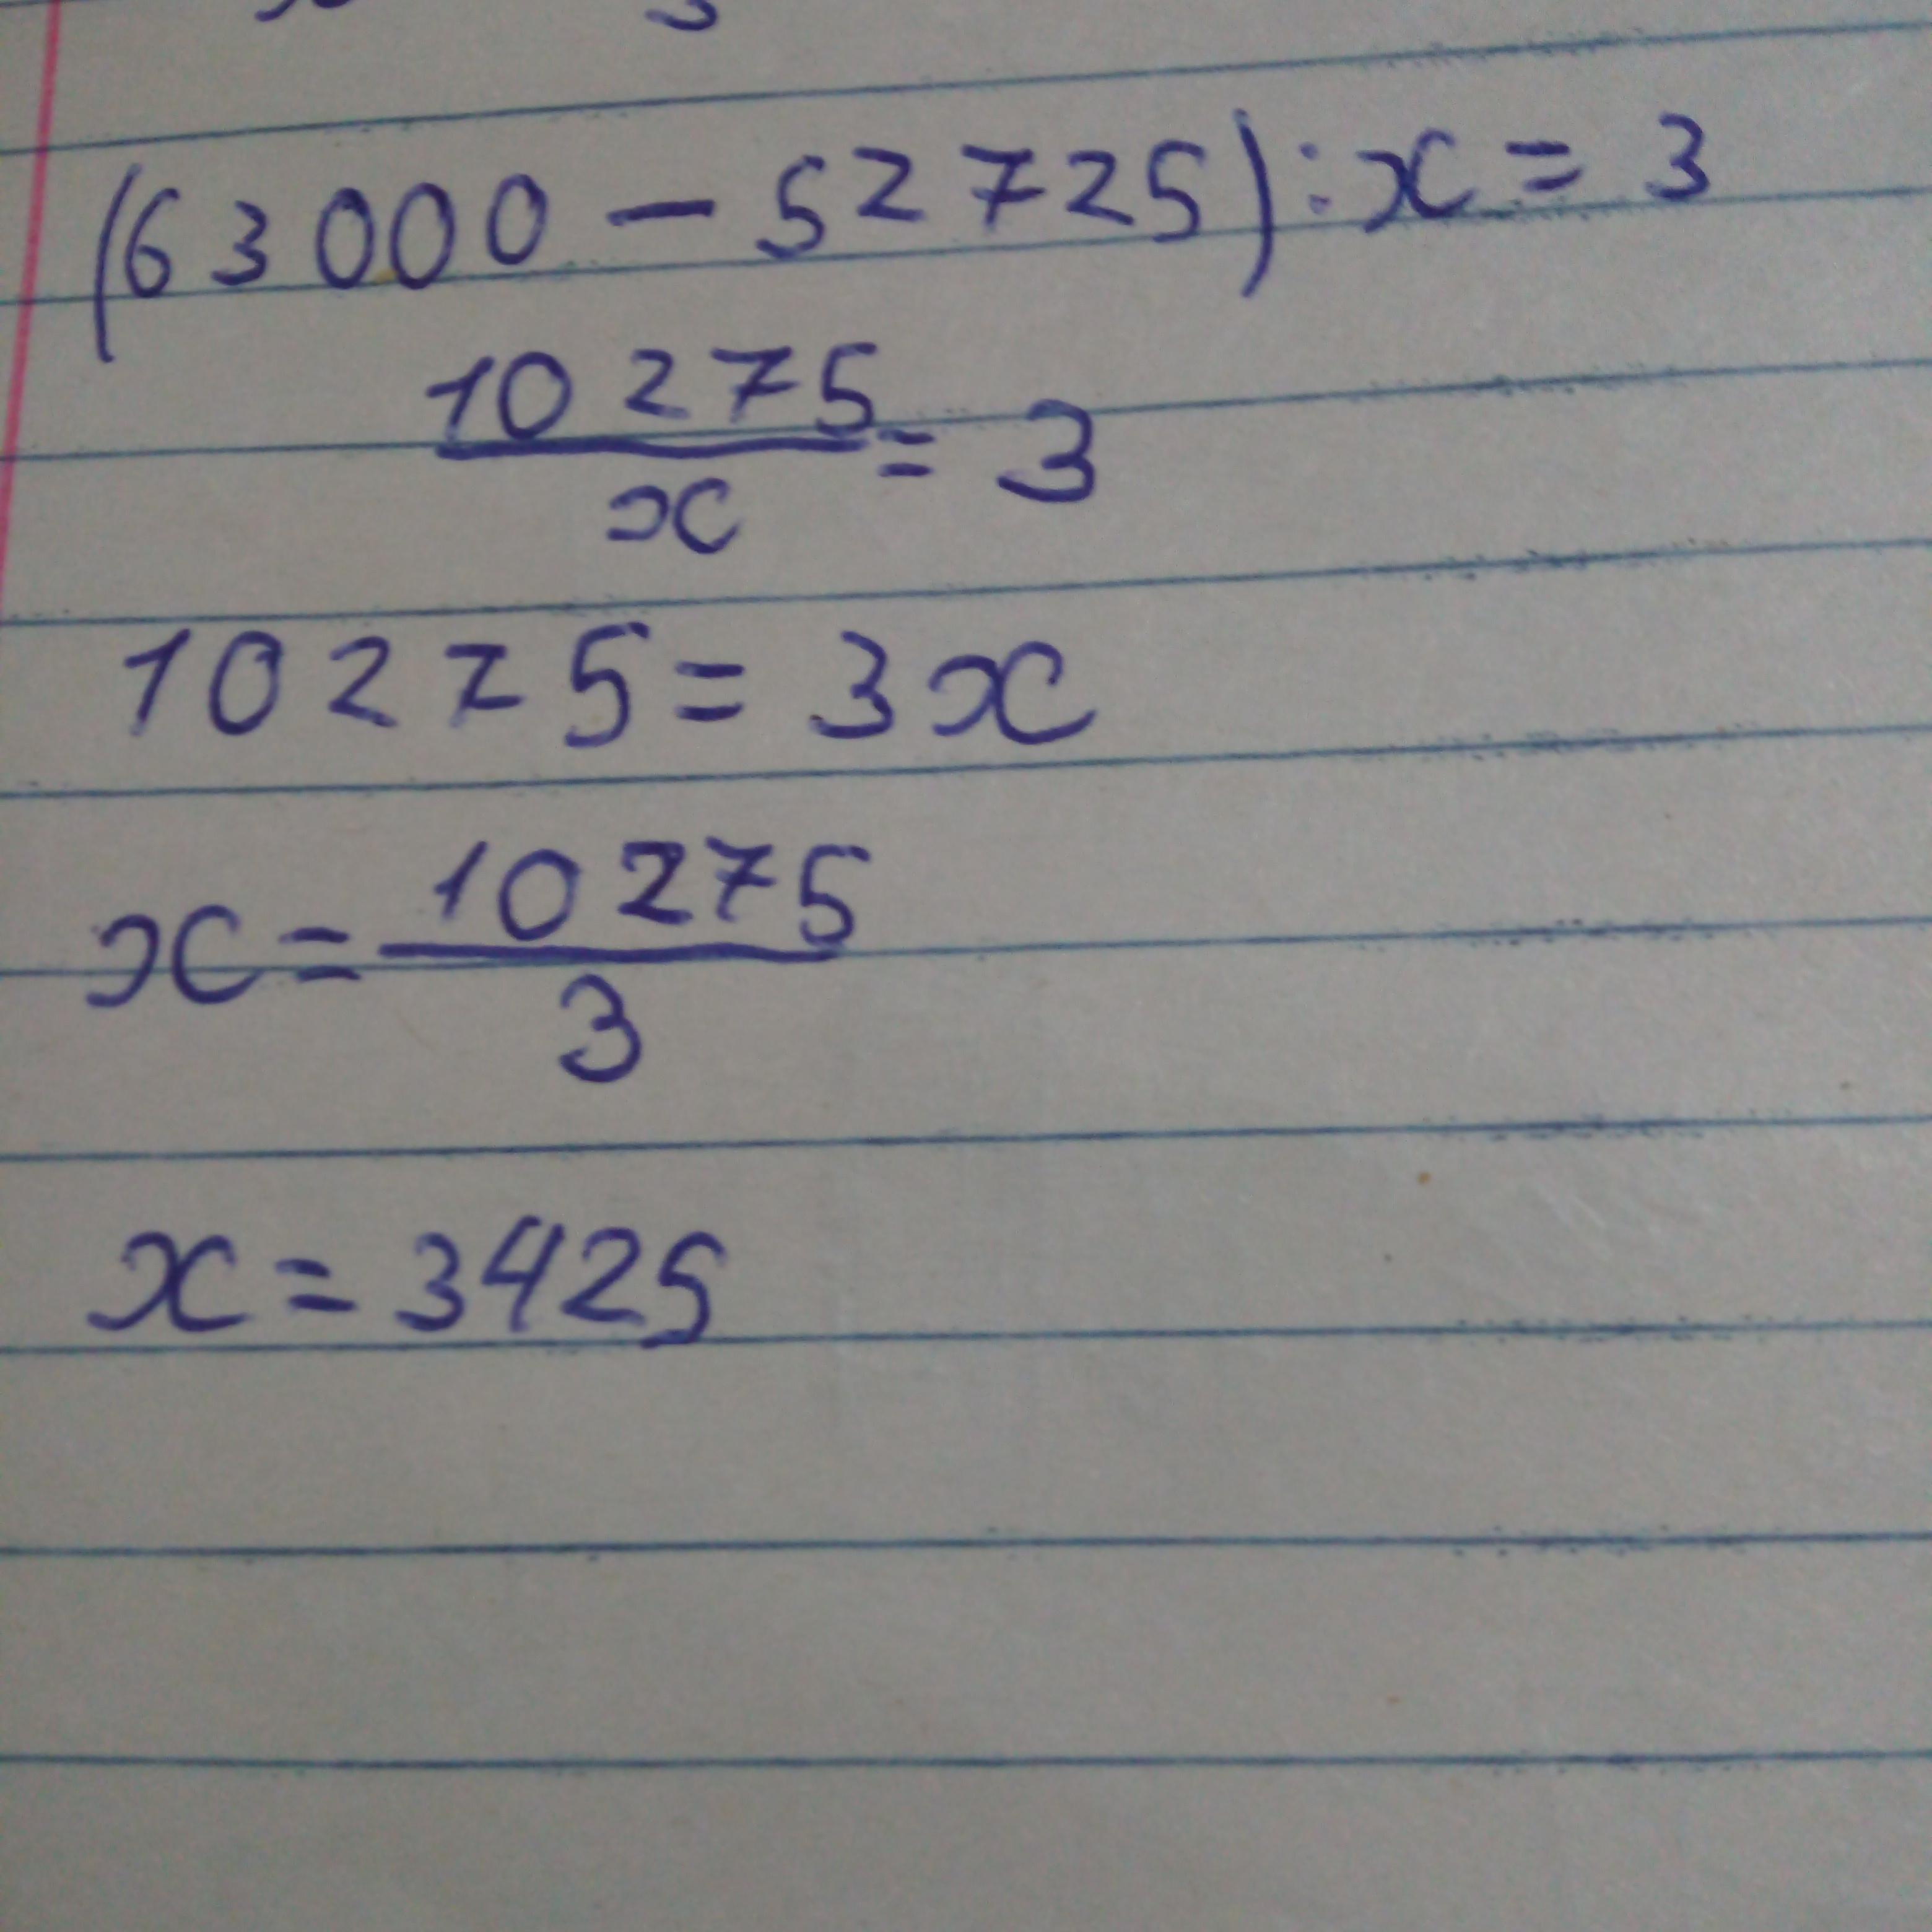 (63000 - 52725) : x = 3
10275/x = 3
10275 = 3x
x = 10275/3
x = 3425